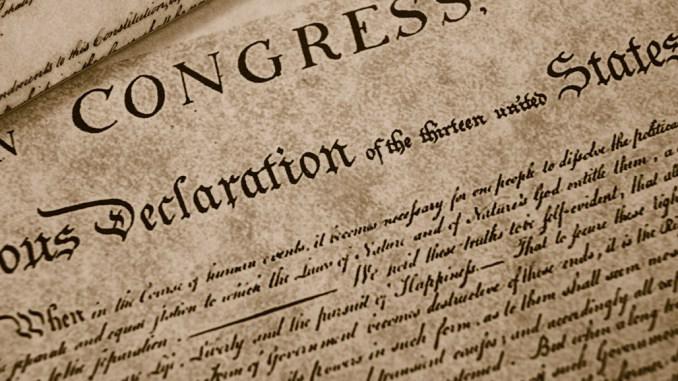 ndments to this Constitution,
N CONGRESS,
ous Declaration of the thirteen united States
When in the Course of human events, it becomes necessary for one people to dissolve the political
separate and equal station to which the Laws of Nature and of Nature's God entitle them, a
to the separation. We hold these truths to be self-evident, that all
Life, Liberty and the pursuit of Happiness. That to secure these righ
Form of Government becomes destructive of these ends, it is the Ri
its powers in such form, as to them shall seem mos
transient causes; and accordingly all
But when a long
such Government